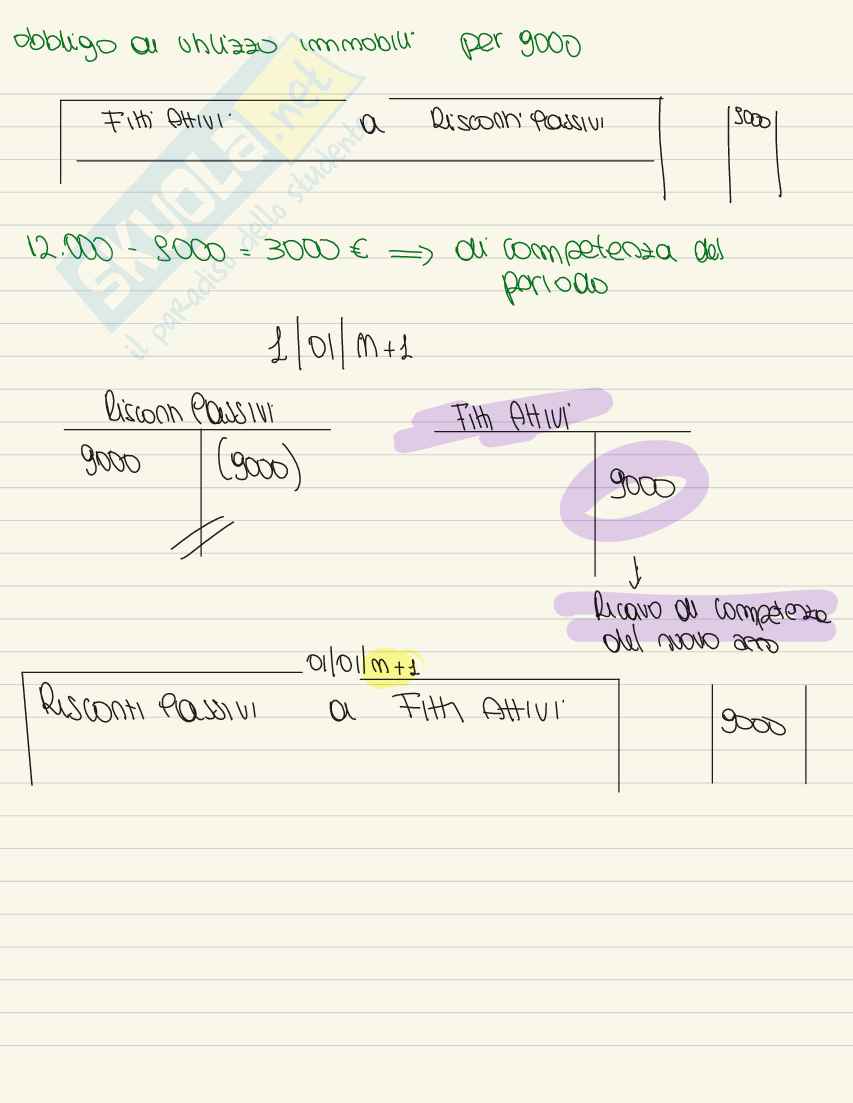 obbligo di utilizzo immobili per 9000
Fitti Attivi a Risconti Passivi 9000
12.000 - 9000 = 3000 € => di competenza del
periodo
SKUOLA.net
il paradiso dello studente
1|01|n+1
Risconti Passivi Fitti Attivi
9000 (9000) 9000
Ricavo di competenza
del nuovo anno
01|01|n+1
Risconti Passivi a Fitti Attivi 9000